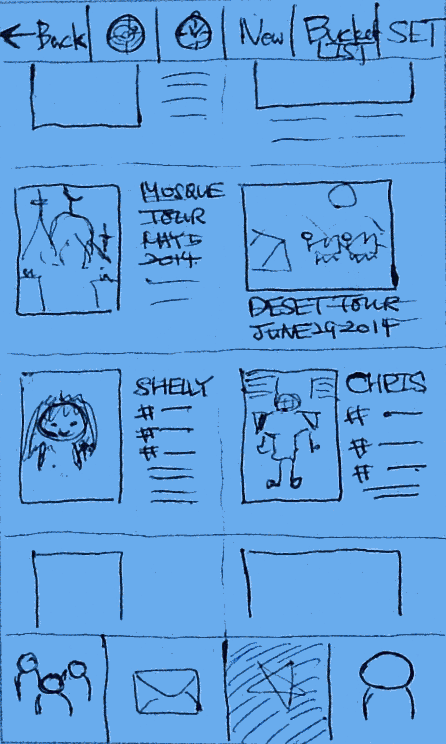 ← Back
New
Bucket
LIST
SET
MOSQUE
TOUR
MAY 5
2014
DESET TOUR
JUNE 29 2014
SHELLY
#
#
#
CHRIS
#
#
#